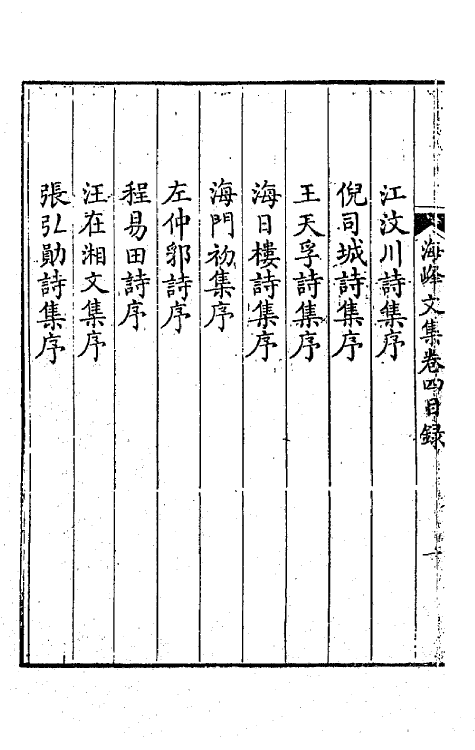 海峰文集卷四目錄
一
江汶川詩集序
倪司城詩集序
王天孚詩集序
海日樓詩集序
海門初集序
左仲郛詩序
程易田詩序
汪在湘文集序
張弘勛詩集序